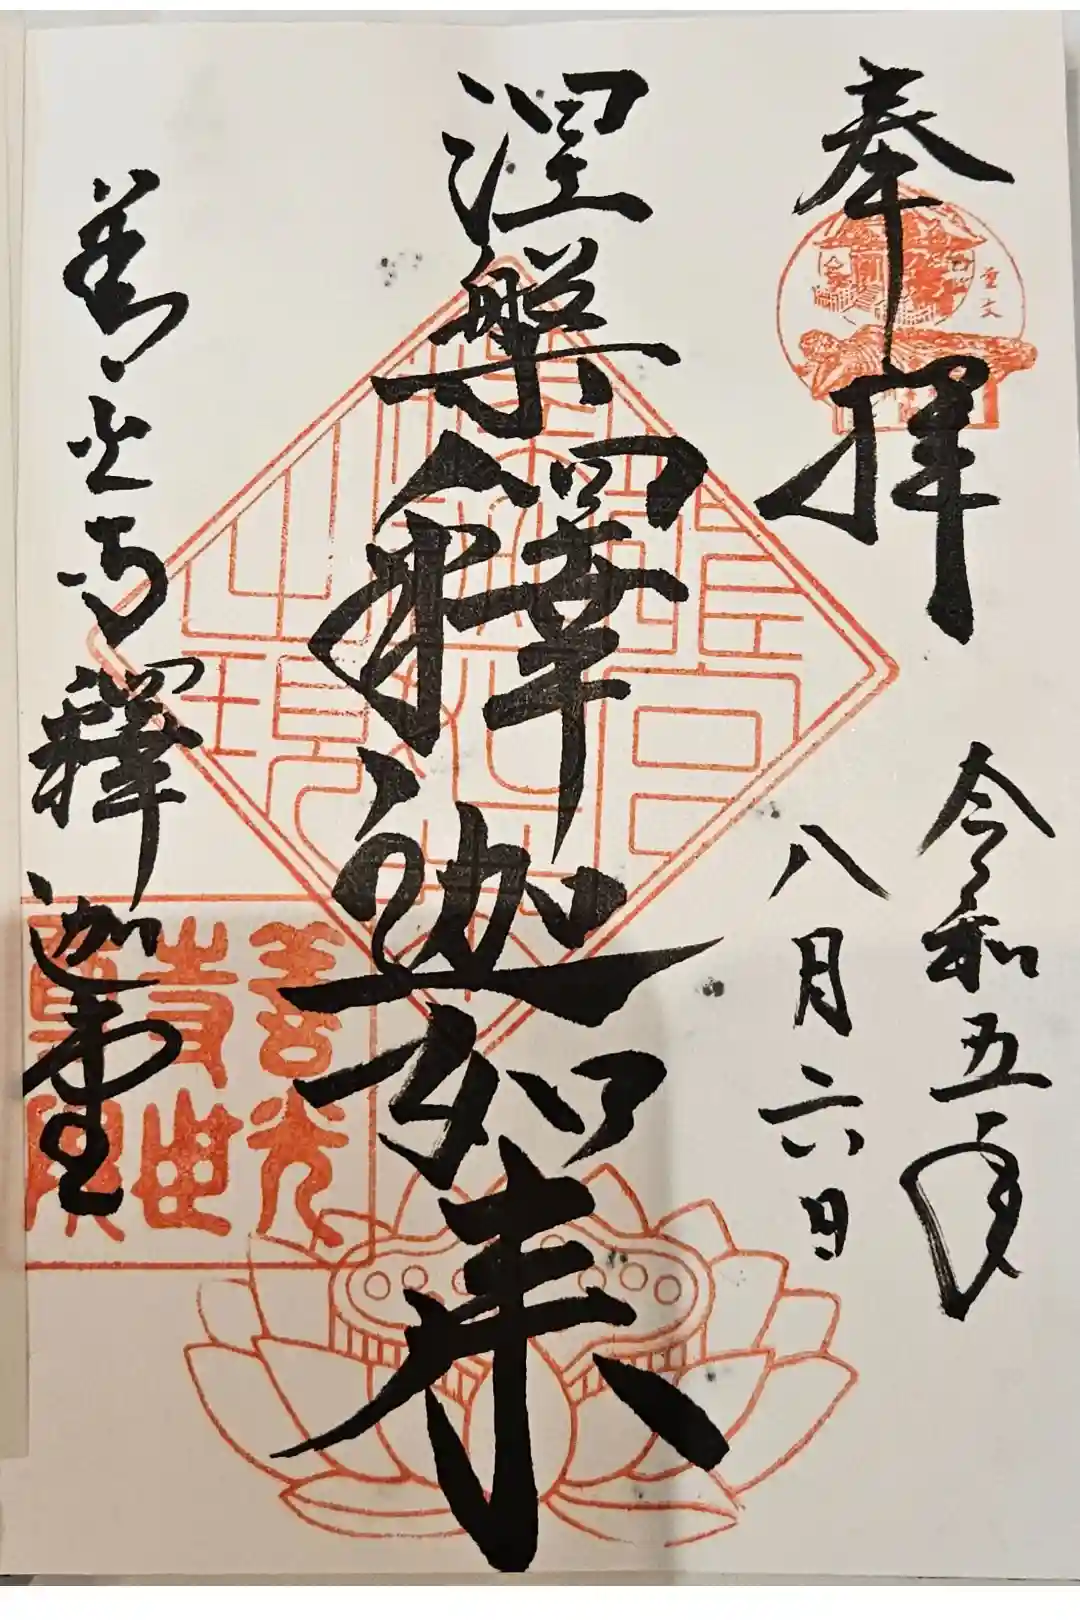 奉拝
重文
令和五年
八月六日
涅槃釋迦如来
善光寺釋迦堂
善光
寺世
尊院